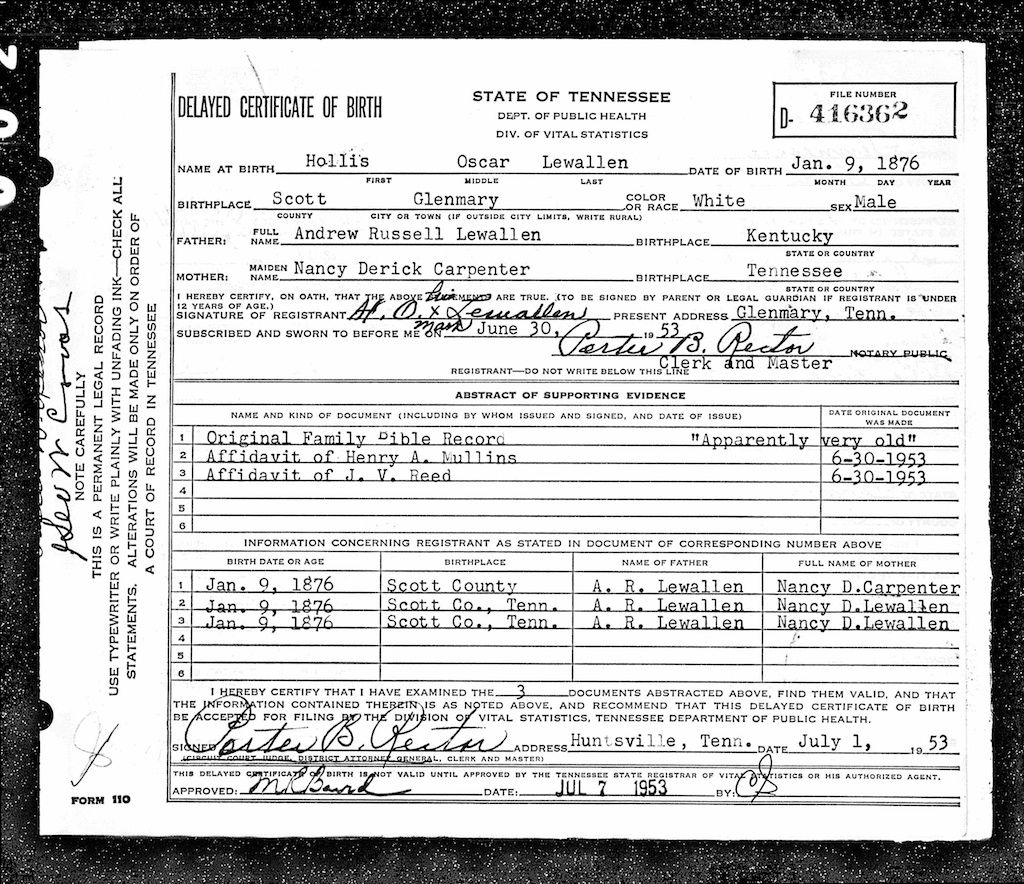 DELAYED CERTIFICATE OF BIRTH
STATE OF TENNESSEE
DEPT. OF PUBLIC HEALTH
DIV. OF VITAL STATISTICS
FILE NUMBER
D- 416362
NAME AT BIRTH Hollis Oscar Lewallen DATE OF BIRTH Jan. 9, 1876
FIRST MIDDLE LAST MONTH DAY YEAR
BIRTHPLACE Scott Glenmary COLOR OR RACE White SEX Male
COUNTY CITY OR TOWN (IF OUTSIDE CITY LIMITS, WRITE RURAL)
FATHER: FULL NAME Andrew Russell Lewallen BIRTHPLACE Kentucky
STATE OR COUNTRY
MOTHER: MAIDEN NAME Nancy Derick Carpenter BIRTHPLACE Tennessee
STATE OR COUNTRY
I HEREBY CERTIFY, ON OATH, THAT THE ABOVE STATEMENTS ARE TRUE. (TO BE SIGNED BY PARENT OR LEGAL GUARDIAN IF REGISTRANT IS UNDER
12 YEARS OF AGE.) his
SIGNATURE OF REGISTRANT H. O. x Lewallen PRESENT ADDRESS Glenmary, Tenn.
mark
SUBSCRIBED AND SWORN TO BEFORE ME ON June 30, 1953
Porter B. Rector NOTARY PUBLIC
Clerk and Master
REGISTRANT—DO NOT WRITE BELOW THIS LINE
ABSTRACT OF SUPPORTING EVIDENCE
NAME AND KIND OF DOCUMENT (INCLUDING BY WHOM ISSUED AND SIGNED, AND DATE OF ISSUE) DATE ORIGINAL DOCUMENT WAS MADE
1 Original Family Bible Record "Apparently very old"
2 Affidavit of Henry A. Mullins 6-30-1953
3 Affidavit of J. V. Reed 6-30-1953
4
5
6
INFORMATION CONCERNING REGISTRANT AS STATED IN DOCUMENT OF CORRESPONDING NUMBER ABOVE
BIRTH DATE OR AGE BIRTHPLACE NAME OF FATHER FULL NAME OF MOTHER
1 Jan. 9, 1876 Scott County A. R. Lewallen Nancy D.Carpenter
2 Jan. 9, 1876 Scott Co., Tenn. A. R. Lewallen Nancy D.Lewallen
3 Jan. 9, 1876 Scott Co., Tenn. A. R. Lewallen Nancy D.Lewallen
4
5
6
I HEREBY CERTIFY THAT I HAVE EXAMINED THE 3 DOCUMENTS ABSTRACTED ABOVE, FIND THEM VALID, AND THAT
THE INFORMATION CONTAINED THEREIN IS AS NOTED ABOVE, AND RECOMMEND THAT THIS DELAYED CERTIFICATE OF BIRTH
BE ACCEPTED FOR FILING BY THE DIVISION OF VITAL STATISTICS, TENNESSEE DEPARTMENT OF PUBLIC HEALTH.
SIGNED Porter B. Rector ADDRESS Huntsville, Tenn. DATE July 1, 1953
(CIRCUIT COURT JUDGE, DISTRICT ATTORNEY GENERAL, CLERK AND MASTER)
THIS DELAYED CERTIFICATE OF BIRTH IS NOT VALID UNTIL APPROVED BY THE TENNESSEE STATE REGISTRAR OF VITAL STATISTICS OR HIS AUTHORIZED AGENT.
APPROVED: DATE: JUL 7 1953 BY:
FORM 110
NOTE CAREFULLY
THIS IS A PERMANENT LEGAL RECORD
USE TYPEWRITER OR WRITE PLAINLY WITH UNFADING INK—CHECK ALL
STATEMENTS. ALTERATIONS WILL BE MADE ONLY ON ORDER OF
A COURT OF RECORD IN TENNESSEE